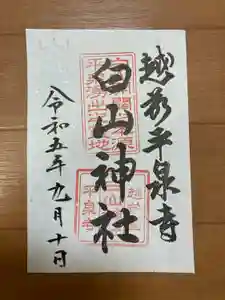 越前平泉寺
白山神社
令和五年九月十日